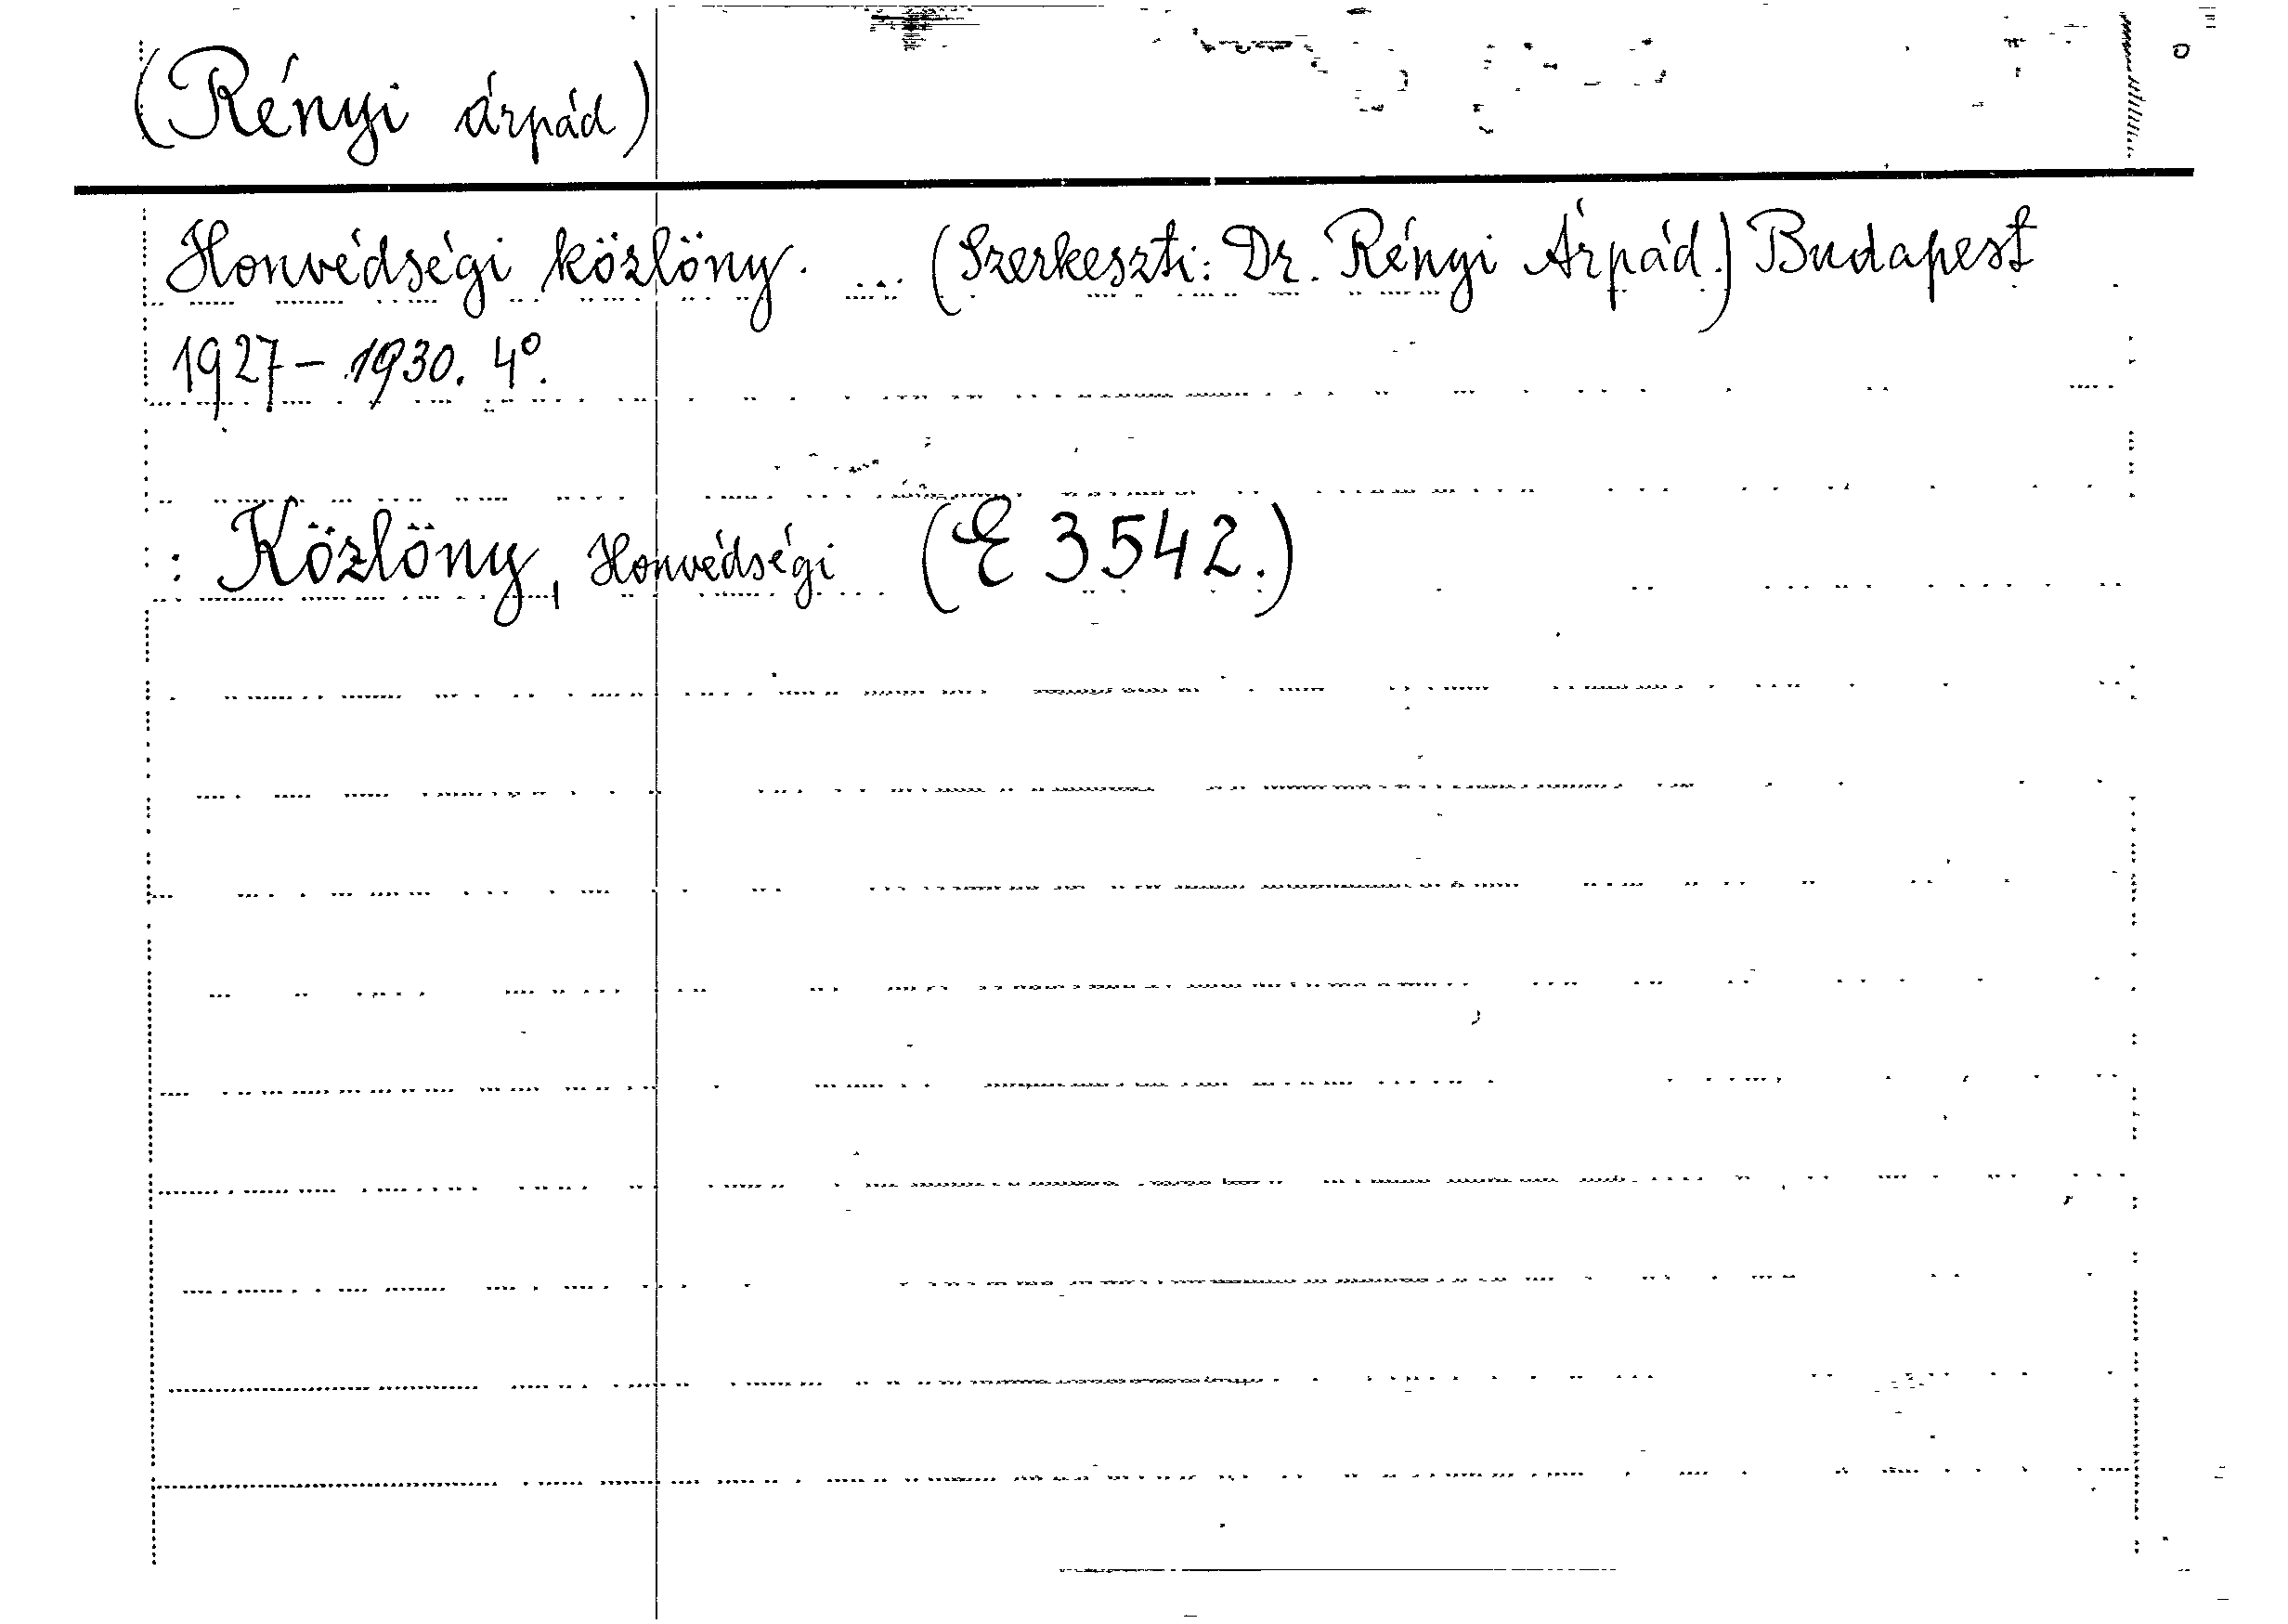 (Rényi Árpád)
Honvédségi közlöny. ... (Szerkeszti: Dr. Rényi Árpád.) Budapest
1927 - 1930. 4°.
: Közlöny, Honvédségi (E 3542.)